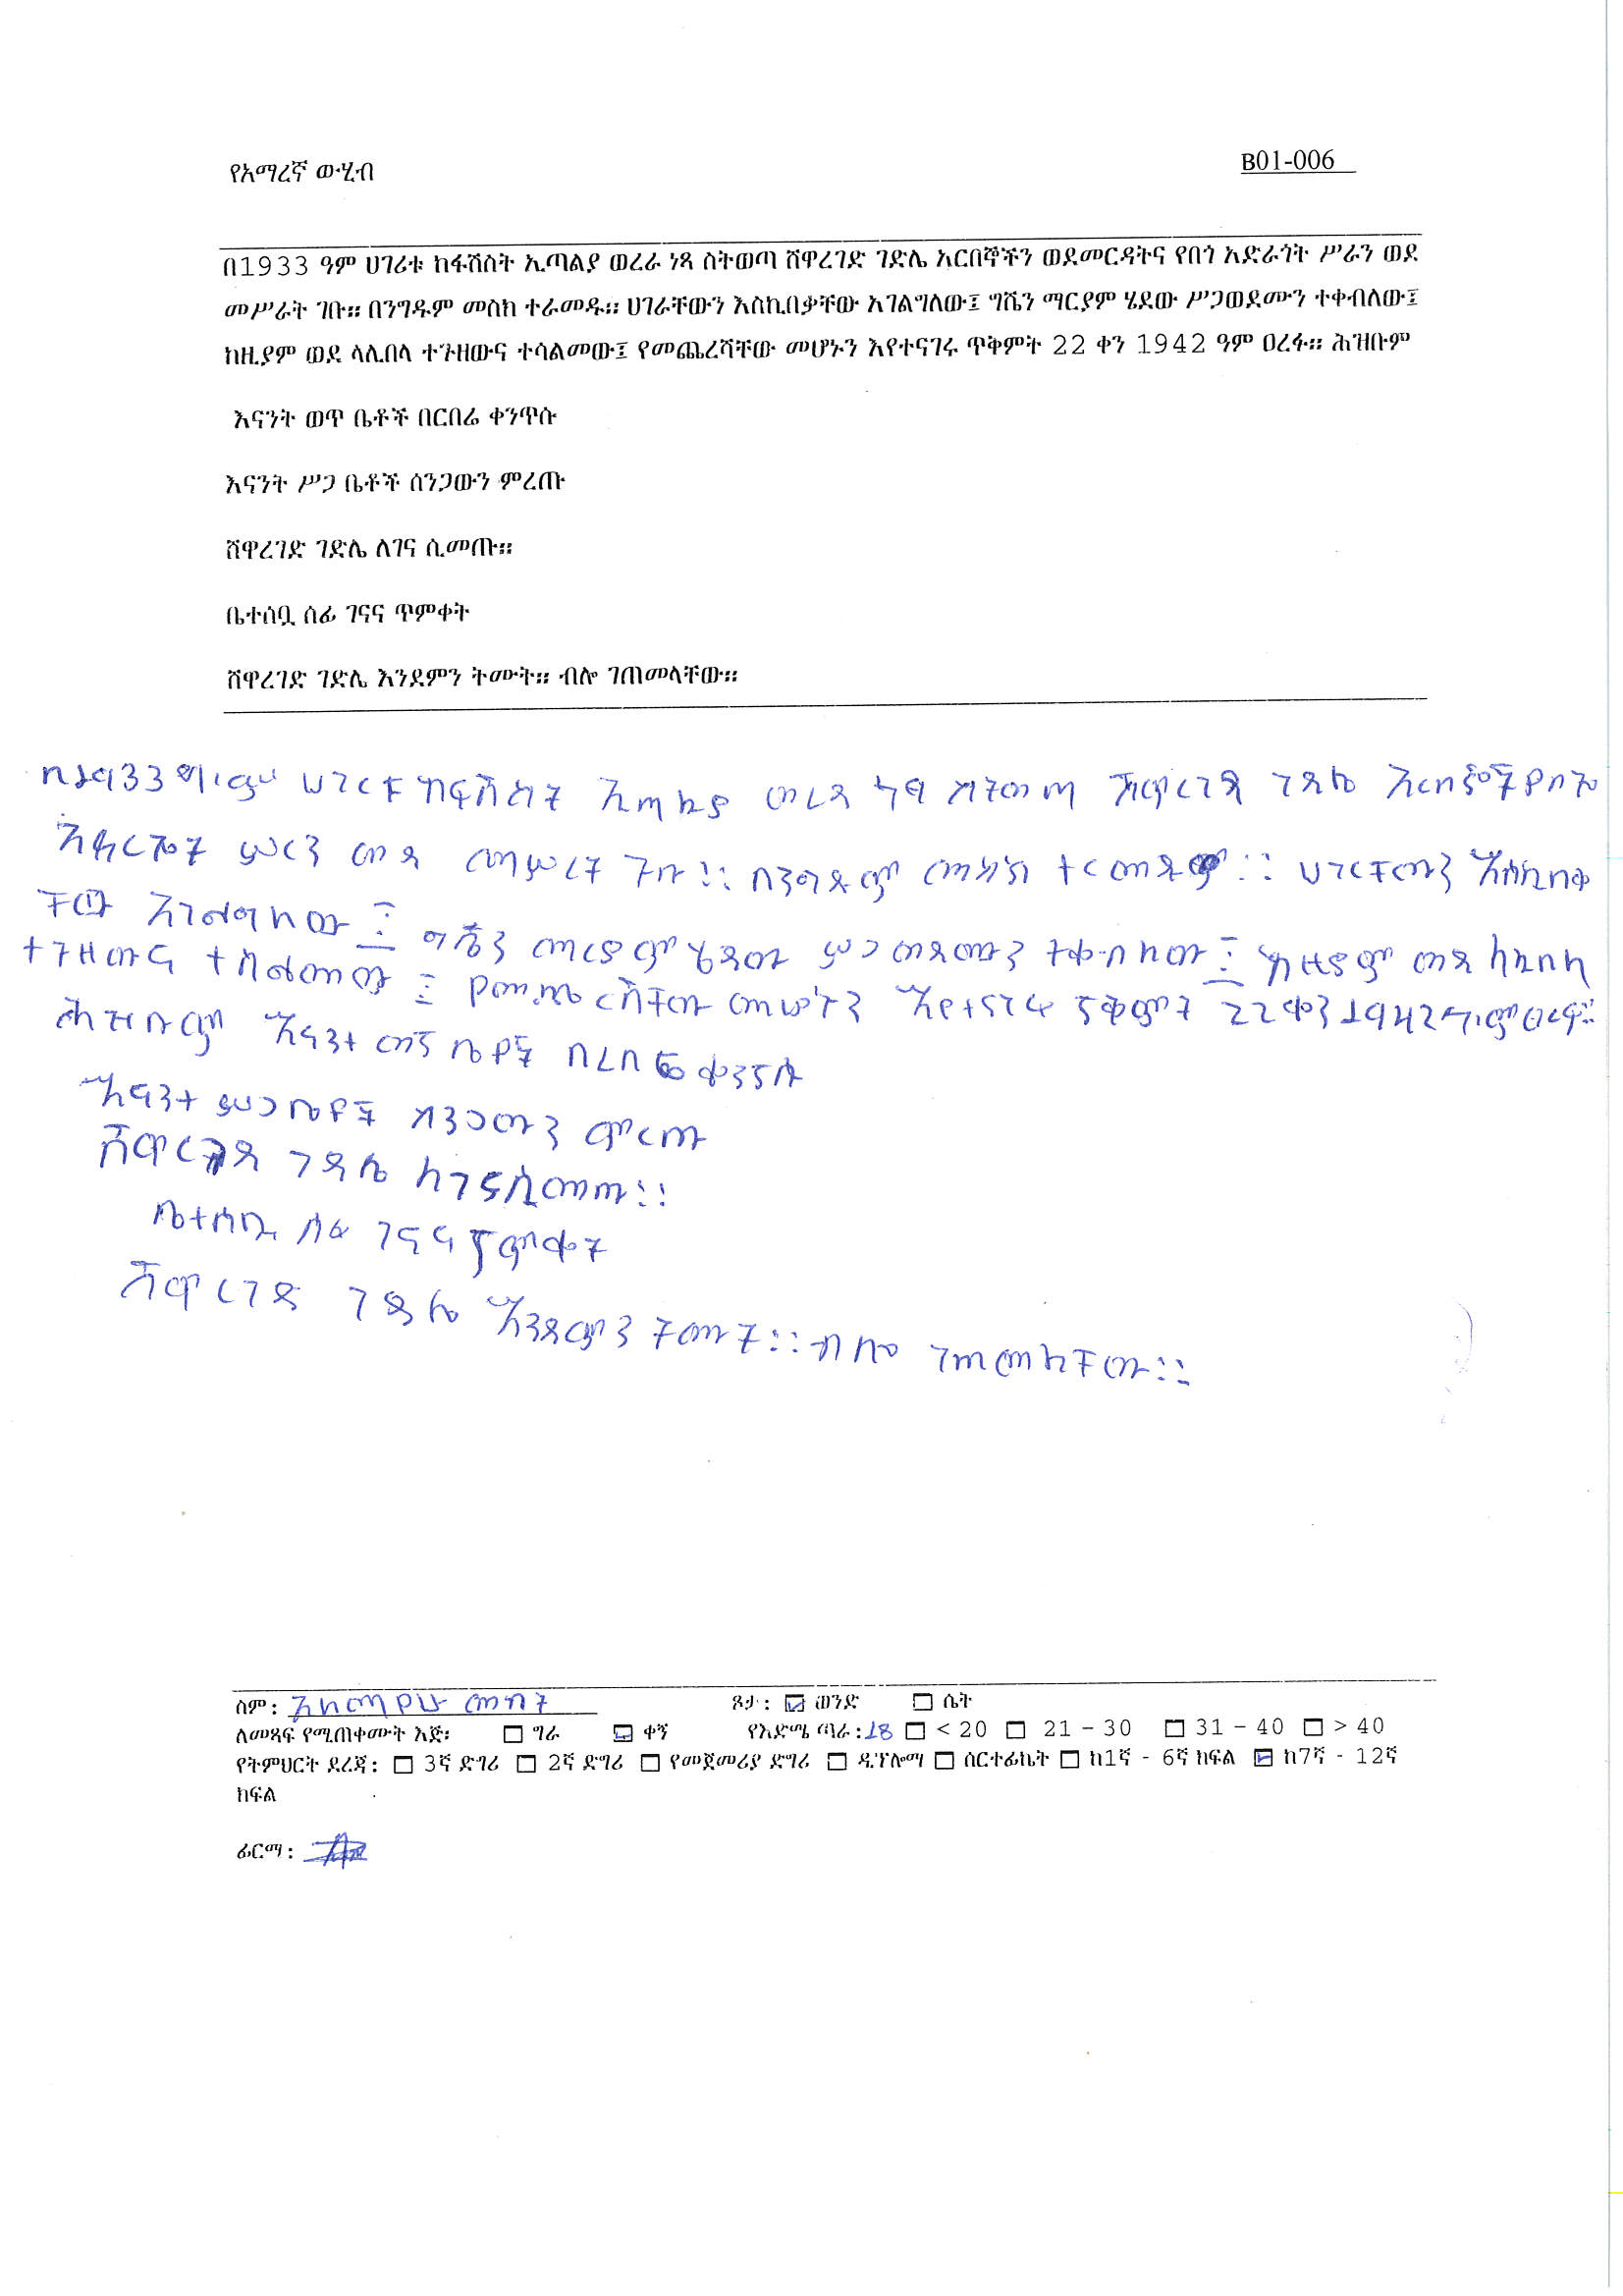 የአማረኛ ውሂብ
B01-006
በ1933 ዓም ሀገሪቱ ከፋሽስት ኢጣልያ ወረራ ነጻ ስትወጣ ሸዋረገድ ገድሌ አርበኞችን ወደመርዳትና የበጎ አድራጎት ሥራን ወደ
መሥራት ገቡ። በንግዱም መስክ ተራመዱ። ሀገራቸውን እስኪበቃቸው አገልግለው፤ ግሼን ማርያም ሄደው ሥጋወደሙን ተቀብለው፤
ከዚያም ወደ ላሊበላ ተጉዘውና ተሳልመው፤ የመጨረሻቸው መሆኑን እየተናገሩ ጥቅምት 22 ቀን 1942 ዓም ዐረፉ። ሕዝቡም
እናንት ወጥ ቤቶች በርበሬ ቀንጥሱ
እናንት ሥጋ ቤቶች ሰንጋውን ምረጡ
ሸዋረገድ ገድሌ ለገና ሲመጡ።
ቤተሰቧ ሰፊ ገናና ጥምቀት
ሸዋረገድ ገድሌ እንደምን ትሙት። ብሎ ገጠመላቸው።
ወረዳ ነፃ ስትወጣ ሸዋረገድ ገዳሌ
ሥረን ወደ መሥረት ጉቡ። በንግዱም መስክ ተረመዱም። ሀገረቸውን እስኪበቀ
ቸው አገልግለው፤ ግሼን መረያም ሄደው ሥጋ ወደሙን ትቀብለው፤ ከዚያም ወደ ላሊበላ
ተጉዘውና ተሳልመው፤ የመጨረሻቸው መሆኑን እየተናገሩ ጥቅምት 22 ቀን 1942 ዓ.ም ዐረፉ።
ሕዝቡም እናንተ ወጥ ቤቶች በረበሬ ቀንጥሱ
እናንተ ሥጋ ቤቶች ሰንጋውን ምረጡ
ሸዋረገድ ገዳሌ ለገና ሲመጡ።
ቤተሰቧ ሰፊ ገናና ጥምቀት
ሸዋረገድ ገዳሌ እንደምን ትሙት። ብሎ ገጠመላቸው።
ስም: አለማየሁ መብት ጾታ: ወንድ ሴት
ለመጻፍ የሚጠቀሙት እጅ፡ ግራ ቀኝ የእድሜ ጣራ: 18 < 20 21 - 30 31 - 40 > 40
የትምህርት ደረጃ: 3ኛ ድግሪ 2ኛ ድግሪ የመጀመሪያ ድግሪ ዲፕሎማ ሰርተፊኬት ከ1ኛ - 6ኛ ክፍል ከ7ኛ - 12ኛ
ክፍል
ፊርማ: